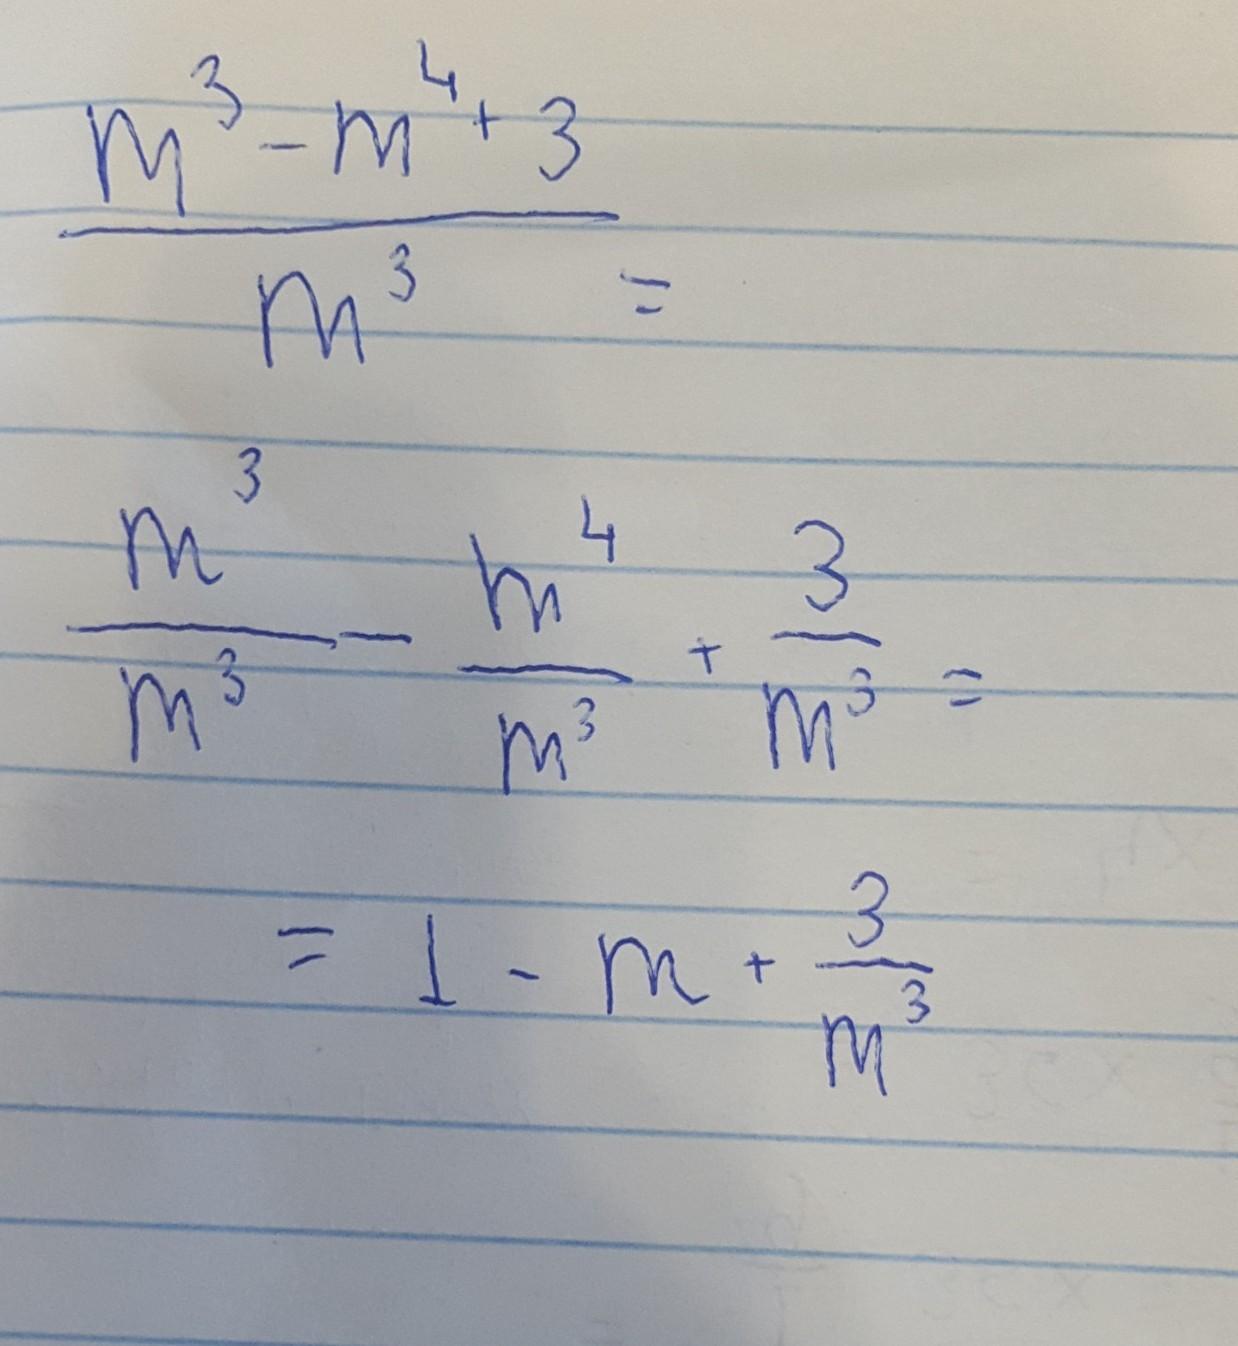 m³ - m⁴ + 3
m³ =
m³ - m⁴ + 3
m³ m³ m³ =
= 1 - m + 3
m³